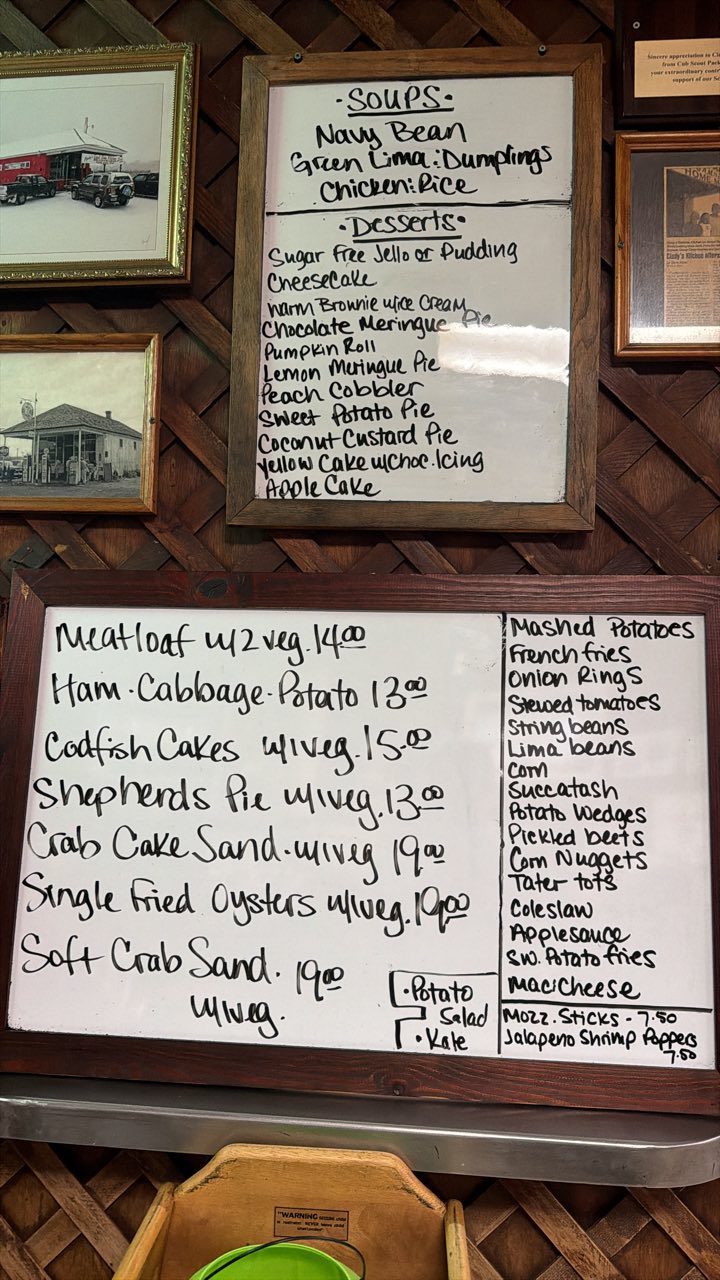 ·SOUPS·
Navy Bean
Green Lima:Dumplings
Chicken:Rice
·Desserts·
Sugar Free Jello or Pudding
Cheesecake
Warm Brownie w/ice Cream
Chocolate Meringue Pie
Pumpkin Roll
Lemon Meringue Pie
Peach Cobbler
Sweet Potato Pie
Coconut Custard Pie
Yellow Cake w/Choc.Icing
Apple Cake
Sincere appreciation to
from Cub Scout Pack
your extraordinary
support of our
Cindy's Kitchen
Meatloaf w/2veg.14.00
Ham·Cabbage·Potato 13.00
Codfish Cakes w/1veg.15.00
Shepherds Pie w/1veg.13.00
Crab Cake Sand.w/1veg 19.00
Single Fried Oysters w/1veg.19.00
Soft Crab Sand. 19.00
w/1veg.
·Potato
Salad
·Kale
Mashed Potatoes
French fries
Onion Rings
Stewed tomatoes
String beans
Lima beans
Corn
Succatash
Potato Wedges
Pickled beets
Corn Nuggets
Tater tots
Coleslaw
Applesauce
Sw. Potato fries
Mac:Cheese
Mozz.Sticks - 7.50
Jalapeno Shrimp Poppers
7.50
"WARNING